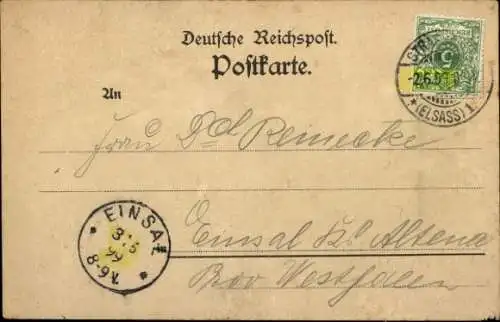 Deutsche Reichspost.
Postkarte.
An
Frau Reinecke
Einsal Kr. Altena
Westfalen
(ELSASS) 1
EINSAL
99
8-9V.